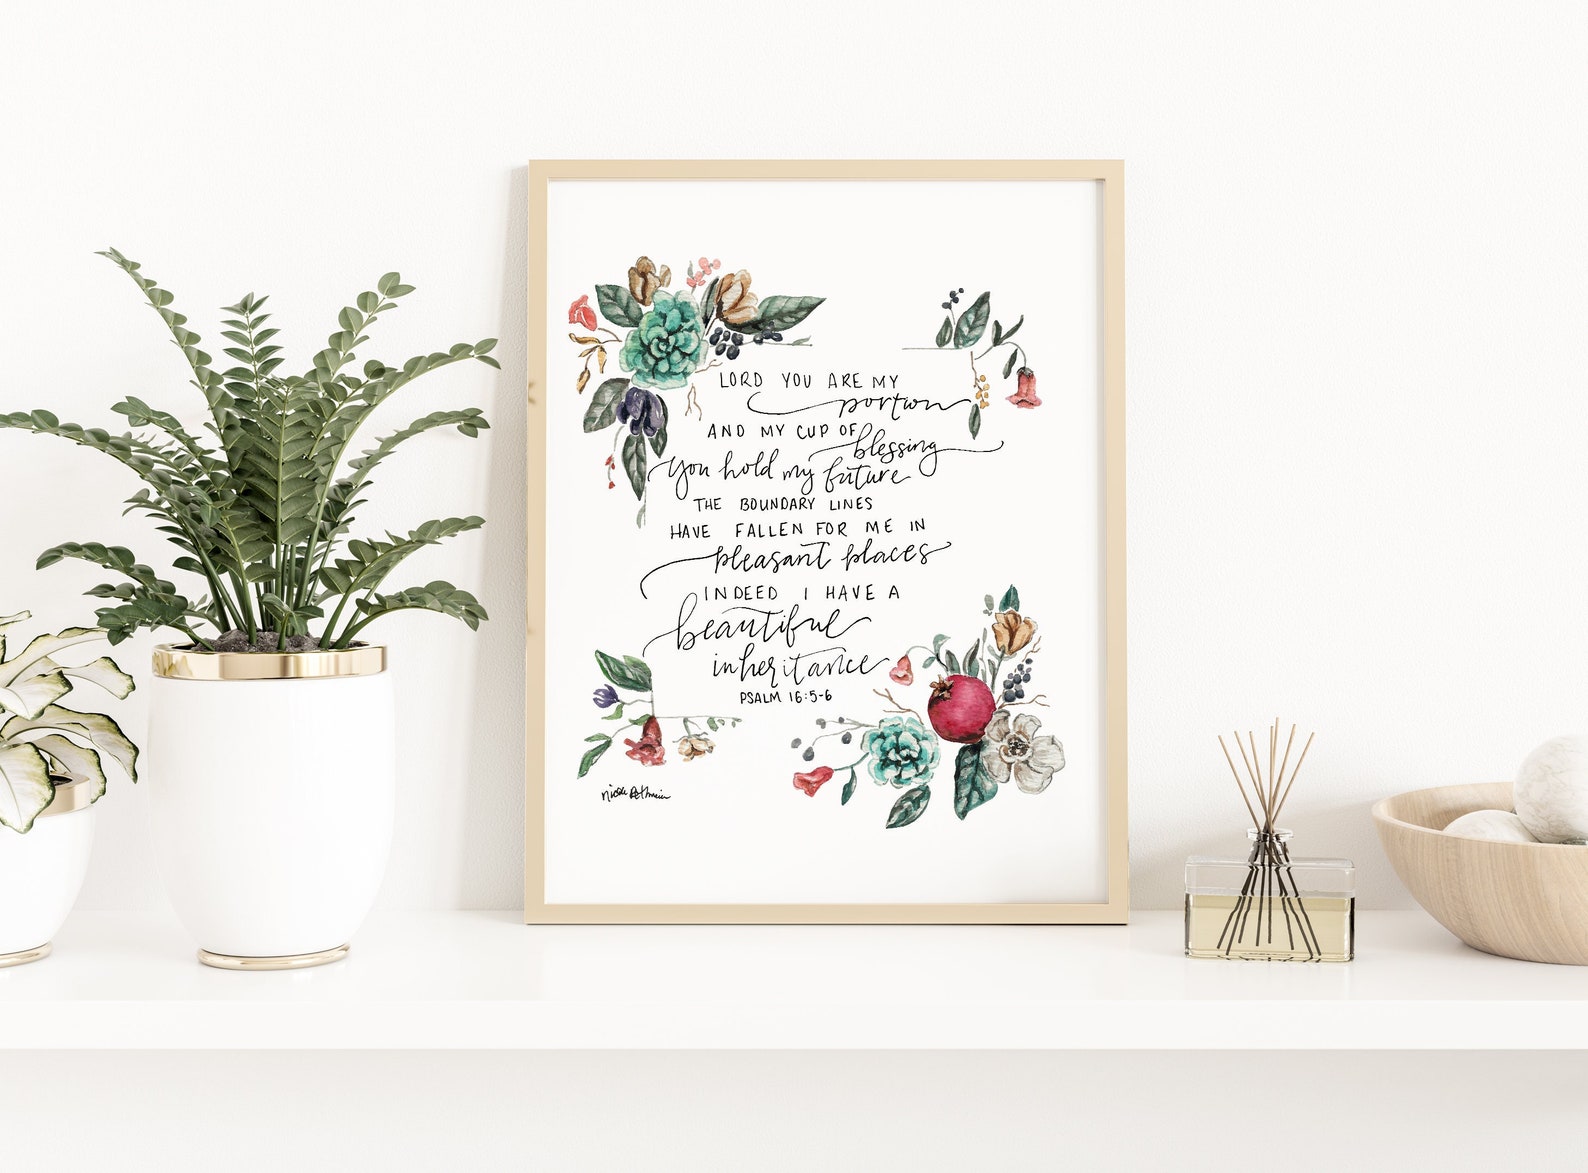 LORD YOU ARE MY
portion
AND MY CUP OF
blessing
you hold my future
THE BOUNDARY LINES
HAVE FALLEN FOR ME IN
pleasant places
INDEED I HAVE A
beautiful
inheritance
PSALM 16:5-6